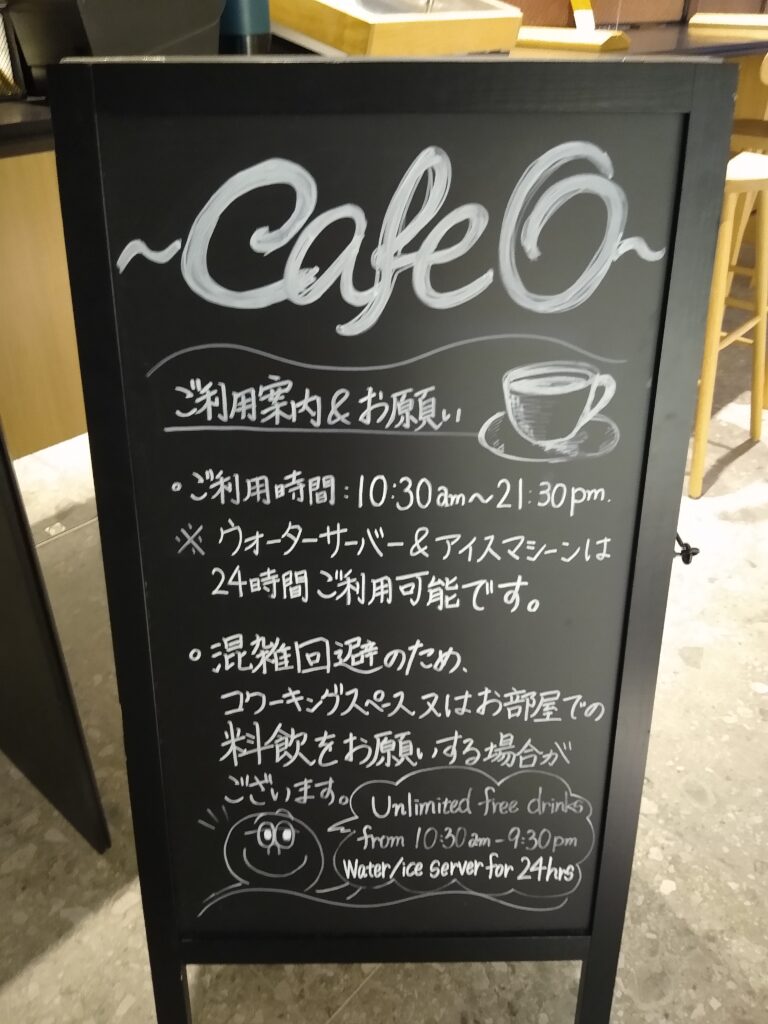 ~Cafe O~
ご利用案内&お願い
・ご利用時間:10:30am〜21:30pm.
※ ウォーターサーバー&アイスマシーンは
24時間ご利用可能です。
・混雑回避のため、
コワーキングスペース又はお部屋での
料飲をお願いする場合が
ございます。
Unlimited free drinks
from 10:30am-9:30pm
Water/ice server for 24hrs